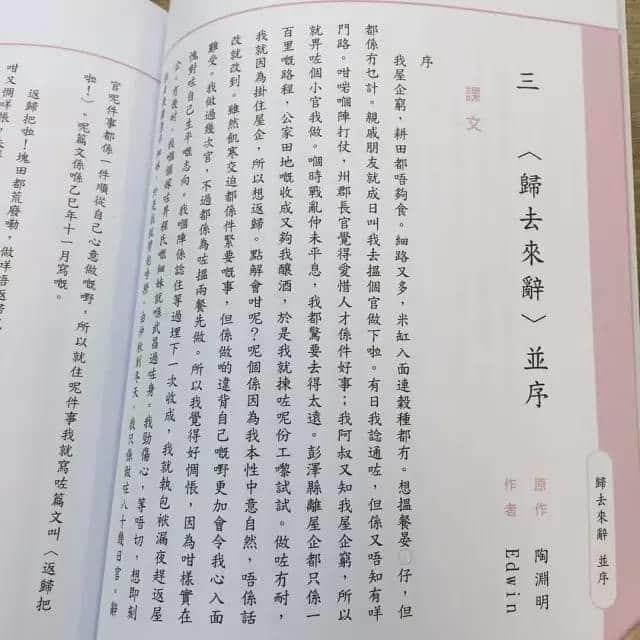 三 〈歸去來辭〉並序
原作 陶淵明
作者 Edwin
課文
序
我屋企窮，耕田都唔夠食。細路又多，米缸入面連穀種都冇。想搵餐晏仔，但
都係冇乜計。親戚朋友就成日叫我去搵個官做下啦。有日我諗通咗，但係又唔知有咩
門路。咁啱嗰陣打仗，州郡長官覺得愛惜人才係件好事；我阿叔又知我屋企窮，所以
就畀咗個小官我做。嗰時戰亂仲未平息，我都驚要去得太遠。彭澤縣離屋企都只係一
百里嘅路程，公家田地嘅收成又夠我釀酒，於是我就揀咗呢份工嚟試試。做咗冇耐，
我就因為掛住屋企，所以想返歸。點解會咁呢？呢個係因為我本性中意自然，唔係話
改就改到。雖然飢寒交迫都係件緊要嘅事，但係做啲違背自己嘅嘢更加會令我心入面
難受。我做過幾次官，不過都係為咗搵兩餐先做。所以我覺得好惆悵，因為咁樣實在
愧對咗自己生平嘅志向。我嗰陣係諗住等過埋下一次收成，我就執包袱漏夜趕返屋
企。有幾時，我嗰個嫁咗畀程氏嘅細妹就喺武昌過咗身。我勁傷心，等唔切，想即刻
由仲秋到冬天，我只係做咗八十幾日官。辭
官呢件事都係一件順從自己心意做嘅嘢，所以就住呢件事我就寫咗篇文叫〈返歸把
啦！〉。呢篇文係喺乙巳年十一月寫嘅。
返歸把啦！塊田都荒廢嘞，做咩唔返歸
歸去來辭 並序